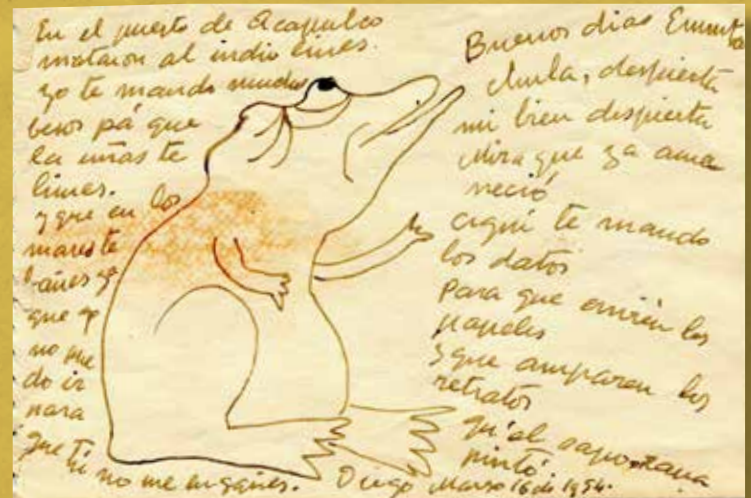 En el puerto de Acapulco
mataron al indio
yo te mando muchos
besos pá que
la uñas te
limes.
y que en los
mares te
bañes ya
que yo
no pue
do ir
para
que tú no me engañes.
Buenos dias Emmita
chula, despierta
mi bien despierta
Mira que ya ama
neció
aquí te mando
los datos
para que envíen los
papeles
y que amparen los
retratos
qu'el sapo-rana
pintó.
Diego Marzo 16 de 1954.